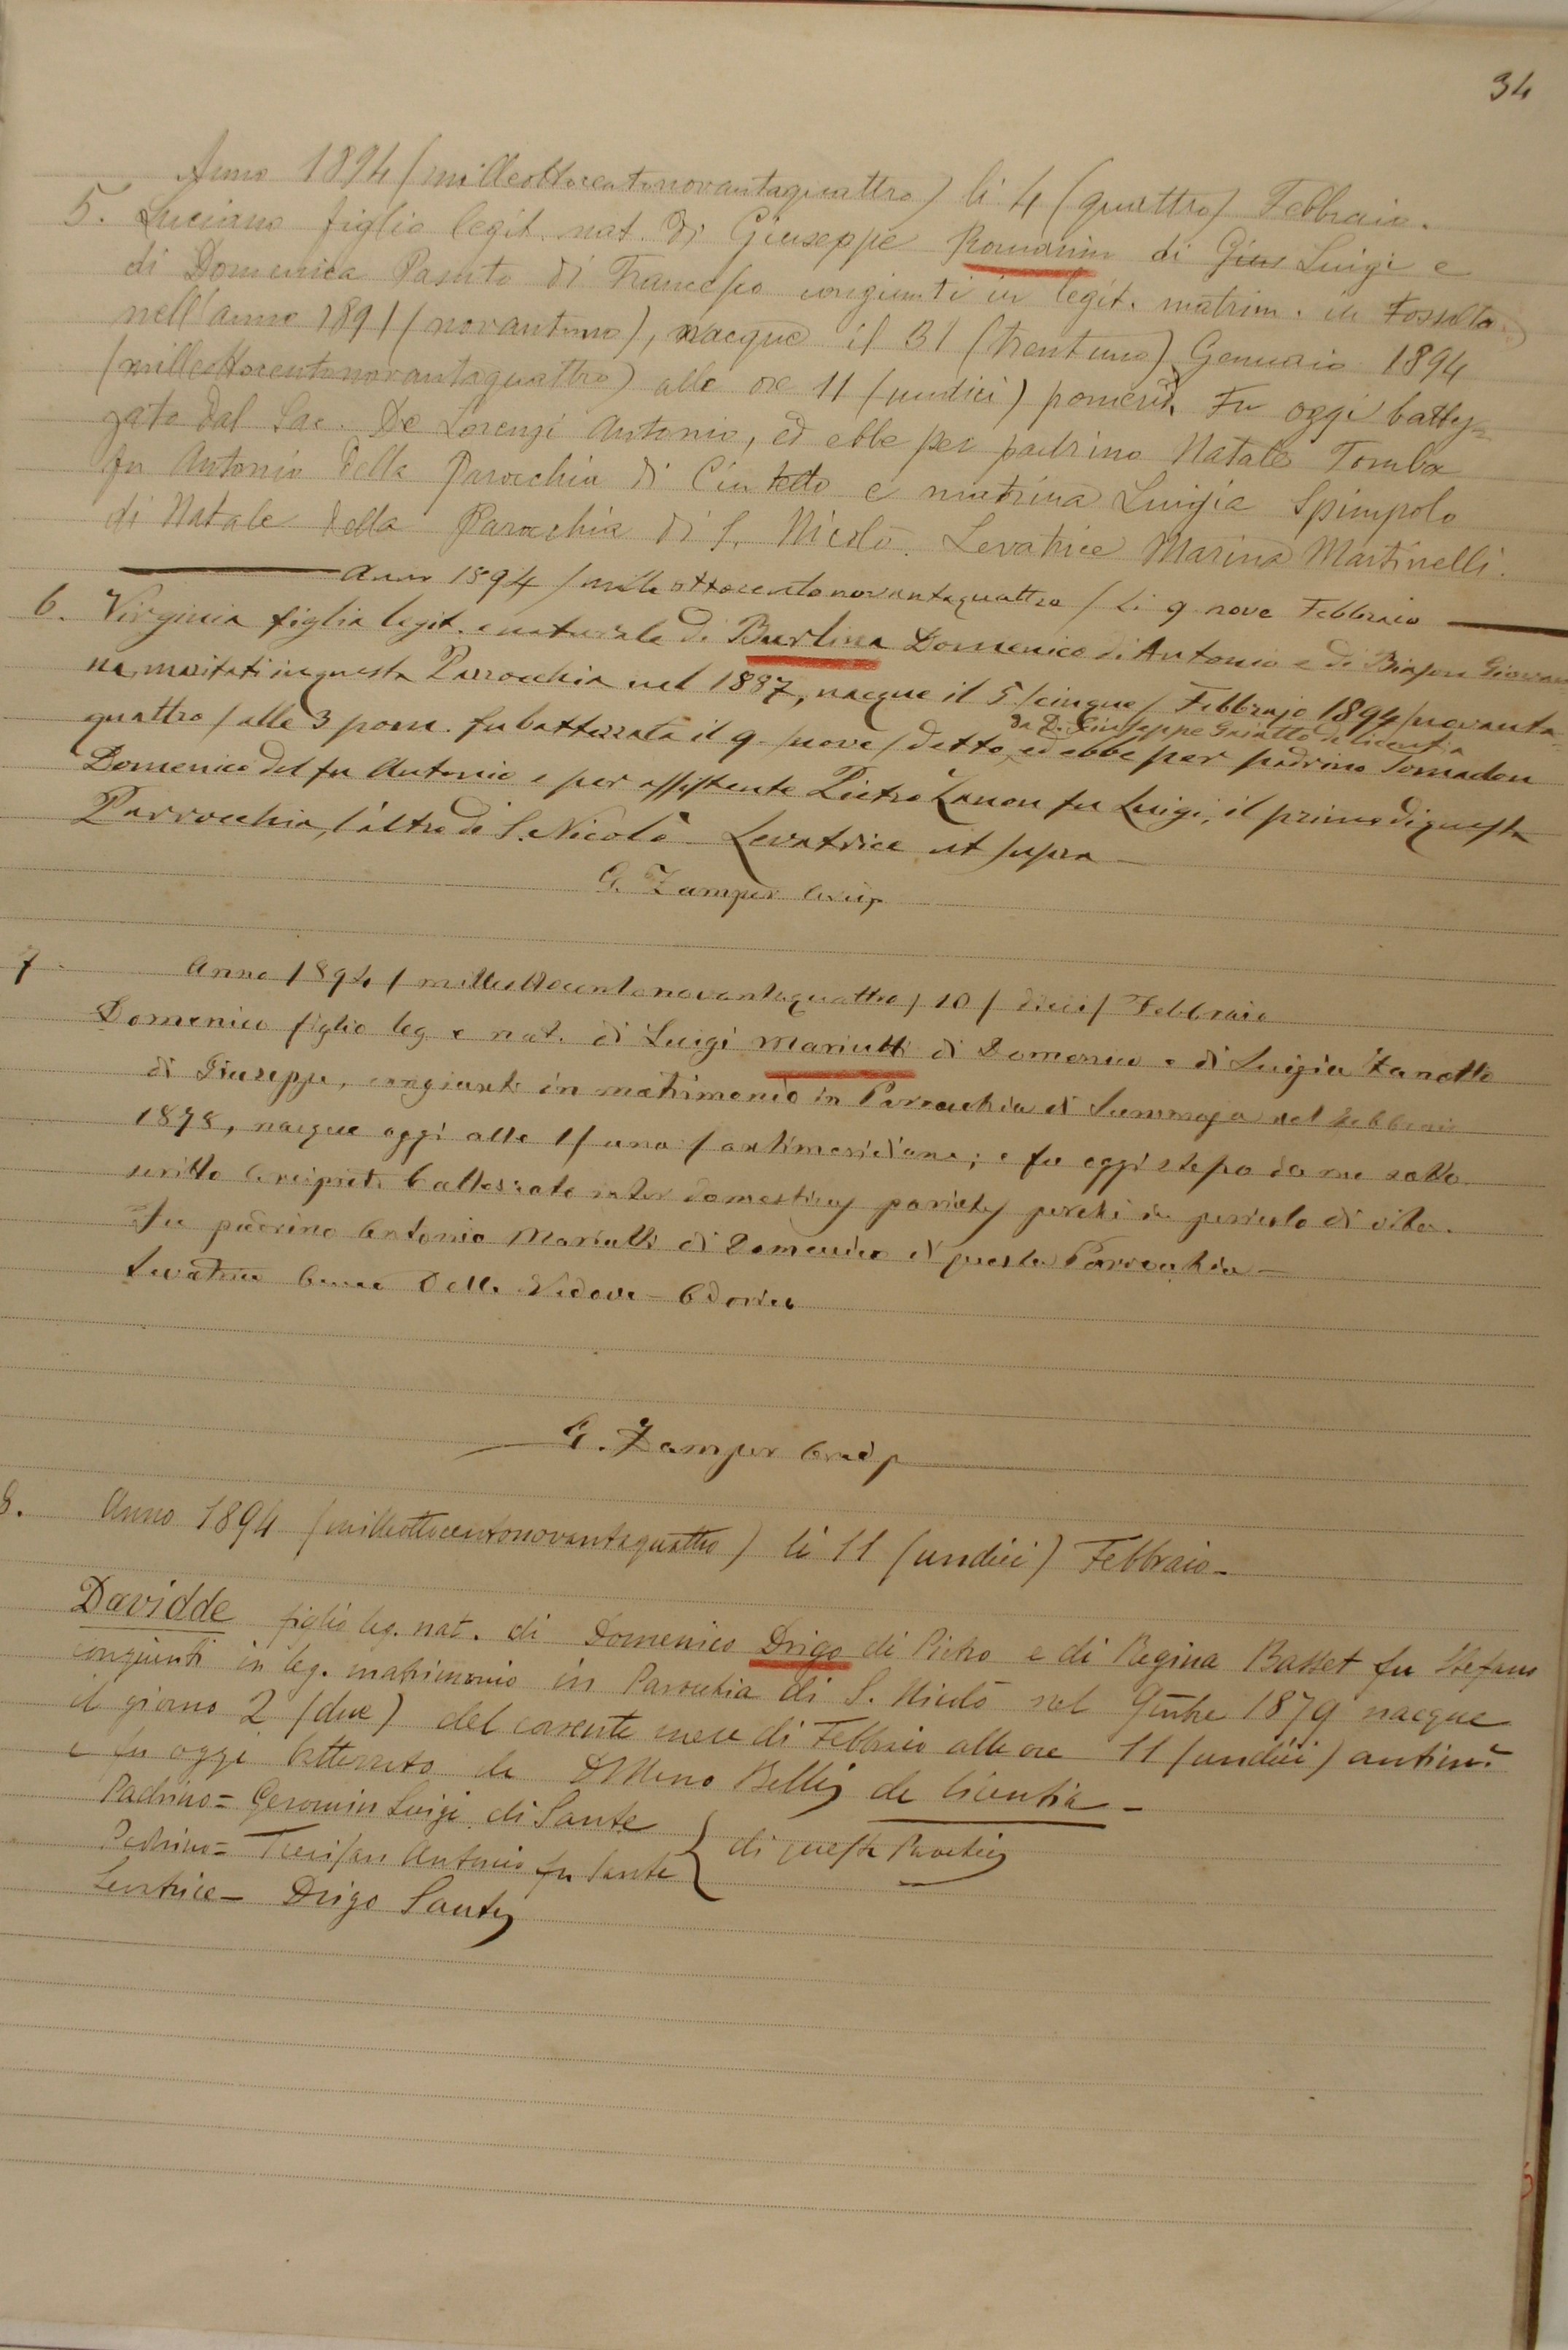 34
Anno 1894 (milleottocentonovantaquattro) li 4 (quattro) Febbraio.
5. Luciano figlio legit. nat. di Giuseppe Romanin di Gius Luigi e
di Domenica Pasuto di Francesco congiunti in legit. matrim. in Fossalta
nell'anno 1891 (novantuno), nacque il 31 (trentuno) Gennaio 1894
(milleottocentonovantaquattro) alle ore 11 (undici) pomerid. Fu oggi battez=
zato dal Sac. De Lorenzi Antonio, ed ebbe per padrino Natale Tomba
fu Antonio della Parocchia di Cintello e matrina Luigia Spimpolo
di Natale della Parocchia di S. Nicolò. Levatrice Marina Martinelli.
Anno 1894 / mille ottocentonovantaquattro / li 9 nove Febbraio
6. Virginia figlia legit. e naturale di Burlina Domenico di Antonio e di Biason Giovan
na, maritati in questa Parrocchia nel 1887, nacque il 5 / cinque / Febbrajo 1894 / novanta=
da D. Giuseppe Gaiatto de licentia
quattro / alle 3 pom. fu battezzata il 9 / nove / detto, ed ebbe per padrino Tomadon
Domenico del fu Antonio e per assistente Pietro Zanon fu Luigi, il primo di questa
Parrocchia, l'altro di S. Nicolò. Levatrice ut supra —
G. Zamper Arcip
7 Anno 1894 / milleottocentonovantaquattro / 10 / dieci / Febbraio
Domenico figlio leg e nat. di Luigi Mariutti di Domenico e di Luigia Zanotto
di Giuseppe, congiunti in matrimonio in Parrocchia di Summaga nel Febbraio
1878, nacque oggi alle 1 / una / antimeridiana; e fu oggi stesso da me sotto
scritto Arciprete battezzato inter domesticos parietes perchè in pericolo di vita.
Fu padrino Antonio Mariutti di Domenico di questa Parrocchia —
Levatrice Anna Della Vedova
G. Zamper Arcip
8. Anno 1894 (milleottocentonovantaquattro) li 11 (undici) Febbraio —
Davidde figlio leg. nat. di Domenico Drigo di Pietro e di Regina Basset fu Stefano
congiunti in leg. matrimonio in Parochia di S. Nicolò nel 1879 nacque
il giorno 2 (due) del corrente mese di Febbraio alle ore 11 (undici) antim:
e fu oggi battezzato da Bellis de licentia —
Padrino = Geromin Luigi di Sante
Padrino = Trevisan Antonio fu Sante } di questa Parochia
Levatrice — Drigo Santa